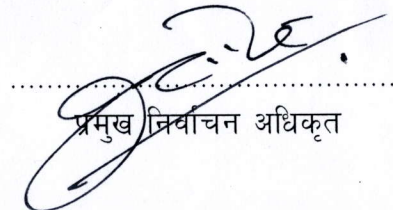 प्रमुख निर्वाचन अधिकृत